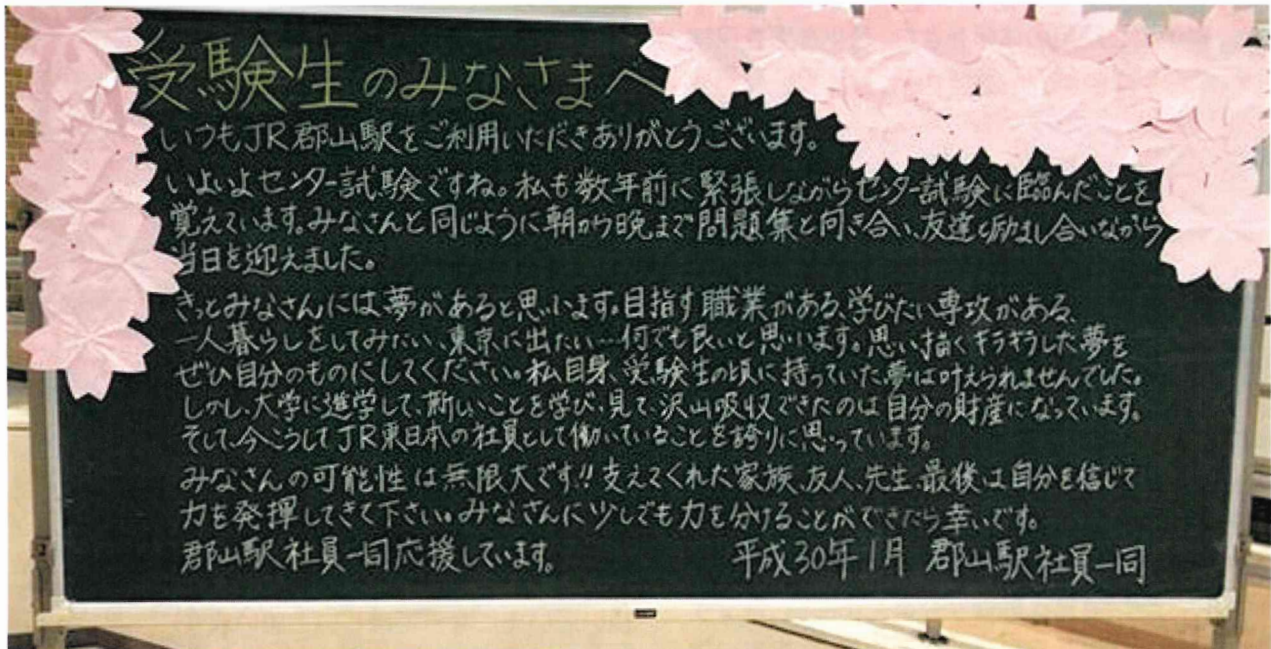 受験生のみなさまへ
いつもJR郡山駅をご利用いただきありがとうございます。
いよいよセンター試験ですね。私も数年前に緊張しながらセンター試験に臨んだことを
覚えています。みなさんと同じように朝から晩まで問題集と向き合い、友達と励まし合いながら
当日を迎えました。
きっとみなさんには夢があると思います。目指す職業がある、学びたい専攻がある、
一人暮らしをしてみたい、東京に出たい…何でも良いと思います。思い描くキラキラした夢を
ぜひ自分のものにしてください。私自身、受験生の頃に持っていた夢は叶えられませんでした。
しかし、大学に進学して、新しいことを学び、見て、沢山吸収できたのは自分の財産になっています。
そして、今こうしてJR東日本の社員として働いていることを誇りに思っています。
みなさんの可能性は無限大です!!支えてくれた家族、友人、先生、最後は自分を信じて
力を発揮してきて下さい。みなさんに少しでも力を分けることができたら幸いです。
郡山駅社員一同応援しています。 平成30年1月 郡山駅社員一同